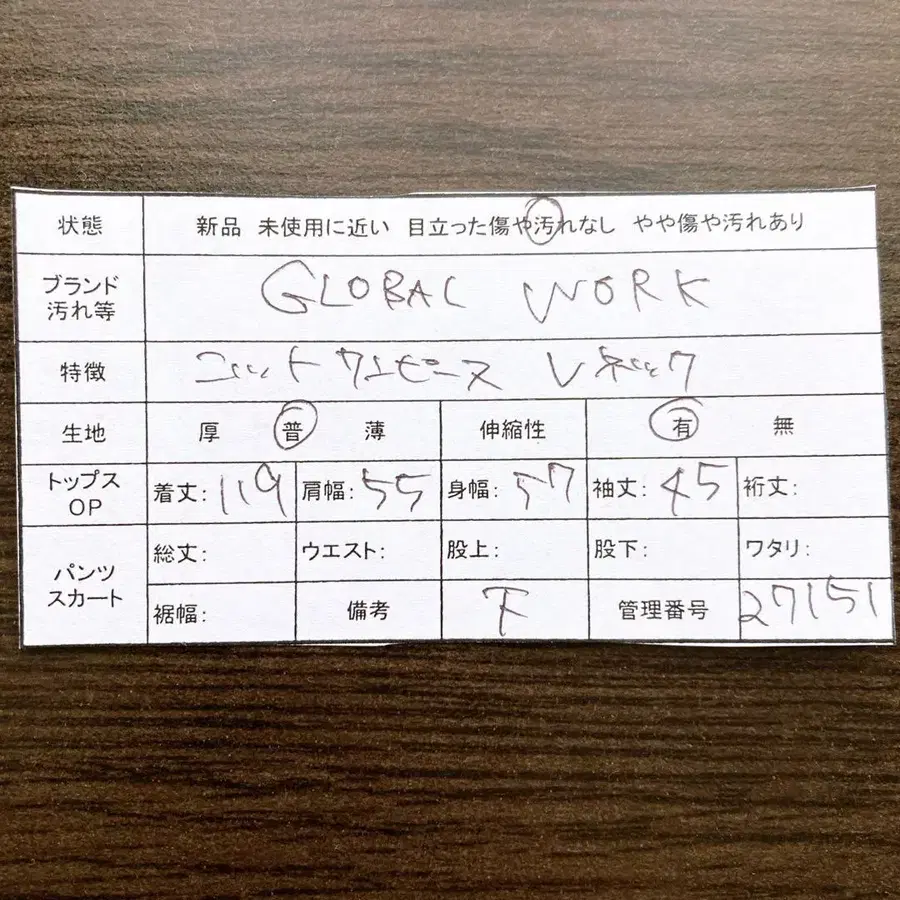 状態 新品 未使用に近い 目立った傷や汚れなし やや傷や汚れあり
ブランド 汚れ等 GLOBAL WORK
特徴 ニットワンピース Vネック
生地 厚 普 薄 伸縮性 有 無
トップス OP 着丈: 119 肩幅: 55 身幅: 57 袖丈: 45 裄丈:
パンツ スカート 総丈: ウエスト: 股上: 股下: ワタリ:
裾幅: 備考 下 管理番号 27151